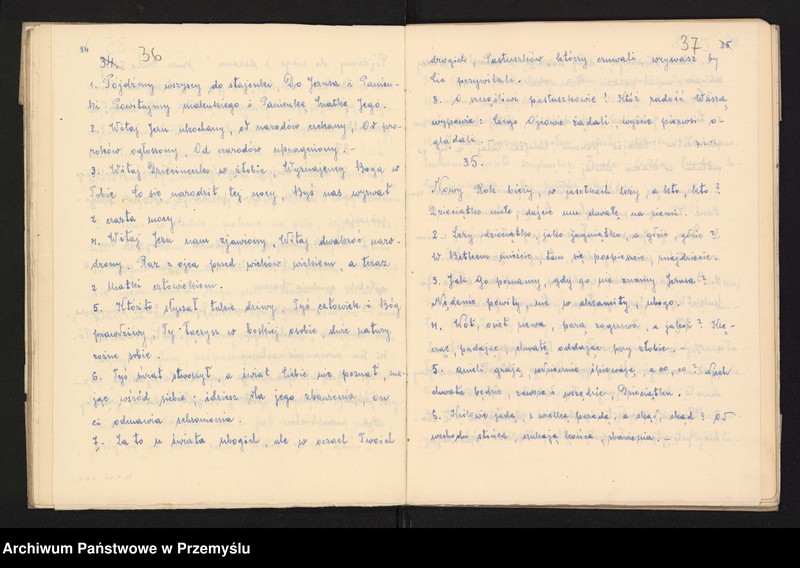 34 36
34.
1. Pójdźmy wszyscy do stajenki, Do Jezusa i Panien-
ki, Powitajmy maleńkiego i Panienkę Matkę Jego.
2. Witaj Jezu ukochany, od narodów czekany, Od pro-
roków ogłoszony, Od narodów upragniony. -
3. Witaj Dziecineczko w żłobie, Wyznajemy Boga w
Tobie, Co się narodził tej nocy, Byś nas wyrwał
z czarta mocy.
4. Witaj Jezu nam zjawiony, Witaj dwakroć naro-
dzony, Raz z ojca przed wieków wiekiem, a teraz
z Matki człowiekiem.
5. Któżto słyszał takie dziwy, Tyś człowiek i Bóg
prawdziwy, Ty łączysz w boskiej osobie, dwie natury
różne sobie.
6. Tyś świat stworzył, a świat Ciebie nie poznał, ma-
jąc wśród siebie; idziesz dla jego zbawienia, on
ci odmawia schronienia.
7. Za to u świata ubogich, ale w oczach Twoich
37 35
drogich, Pastuszków, którzy czuwali, wezwasz by
Cię przywitali.
8. O szczęśliwi pastuszkowie! Któż radość Waszą
wypowie: Czego Ojcowie żądali, wyście pierwsi o-
glądali. -
35.
Nowy Rok bieży, w jasełkach leży, a kto, kto?
Dzieciątko małe, dajcie mu chwałę na ziemi.
2. Leży dzieciątko, jako jagniątko, a gdzie, gdzie?
W Betleem mieście, tam się pospieszcie, znajdziecie.
3. Jak Go poznamy, gdy go nie znamy Jezusa?
Nędznie powity, nie w aksamity, ubogo.
4. Wół, osieł ziewa, parą zagrzewa, a jakoż? Klę-
cząc, padając, chwałę oddając przy żłobie. -
5. Anieli grają, wdzięcznie śpiewają, a co, co? Niech
chwała będzie, zawsze i wszędzie, Dzieciątku.
6. Królowie jadą, z wielką paradą, a skąd, skąd? Od
wschodu słońca, szukają końca, zbawienia. -
Archiwum Państwowe w Przemyślu